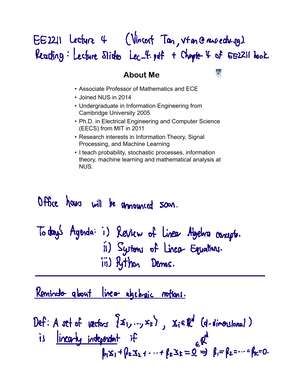 EE2211 Lecture 4 (Vincent Tan, vtan@nus.edu.sg)
Reading: Lecture Slides Lec_4.pdf + Chapter 4 of EE2211 book
About Me
• Associate Professor of Mathematics and ECE
• Joined NUS in 2014
• Undergraduate in Information Engineering from
Cambridge University 2005
• Ph.D. in Electrical Engineering and Computer Science
(EECS) from MIT in 2011
• Research interests in Information Theory, Signal
Processing, and Machine Learning
• I teach probability, stochastic processes, information
theory, machine learning and mathematical analysis at
NUS.
Office hours will be announced soon.
Today's Agenda: i) Review of Linear Algebra concepts.
ii) Systems of Linear Equations.
iii) Python Demos.
Reminder about linear algebraic notions.
Def: A set of vectors {x₁, ..., x₂}, xᵢ∈ℝᵈ (d-dimensional)
is linearly independent if ∈ℝᵈ
β₁x₁ + β₂x₂ + ... + β₂x₂ = 0 ⇒ β₁=β₂=...=β₂=0.